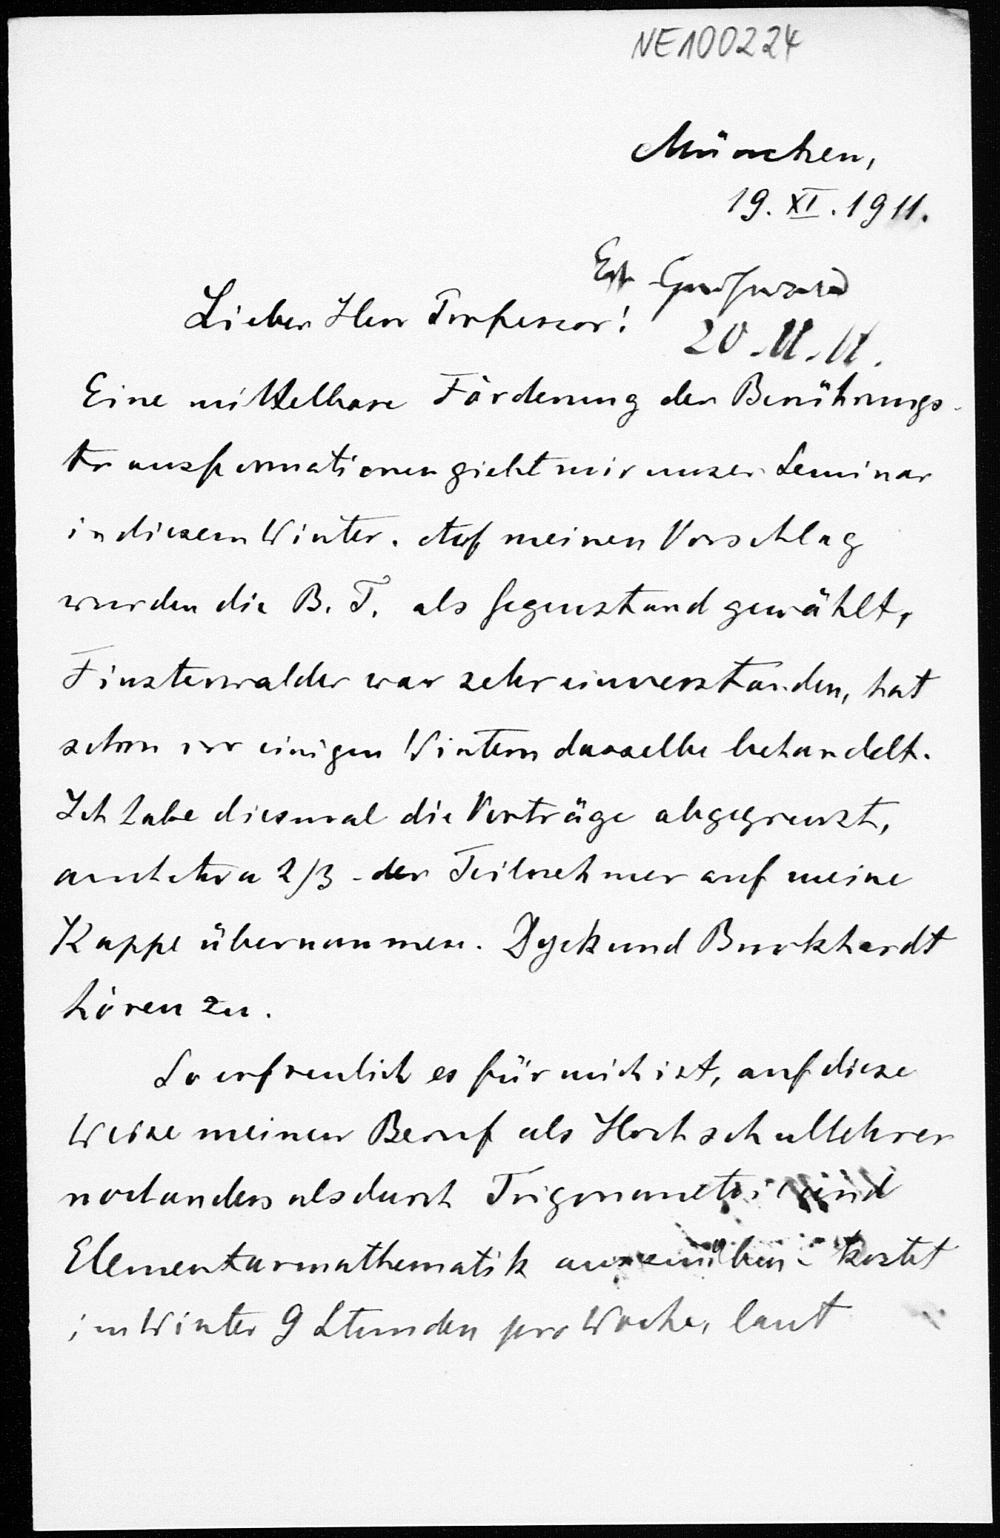 NE100224
München,
19. XI. 1911.
Lieber Herr Professor!
20.11.11.
Eine mittelbare Förderung der Berührungs-
transformationen giebt mir unser Seminar
in diesem Winter. Auf meinen Vorschlag
wurden die B. T. als Gegenstand gewählt,
Finsterwalder war sehr einverstanden, hat
schon vor einigen Wintern dasselbe behandelt.
Ich habe diesmal die Vorträge abgegrenzt,
auch etwa 2/3 der Teilnehmer auf meine
Kappe übernommen. Dyck und Burkhardt
hören zu.
So erfreulich es für mich ist, auf diese
Weise meinen Beruf als Hochschullehrer
noch anders als durch Trigonometrie und
Elementarmathematik auszuüben – kostet
im Winter 9 Stunden pro Woche, laut